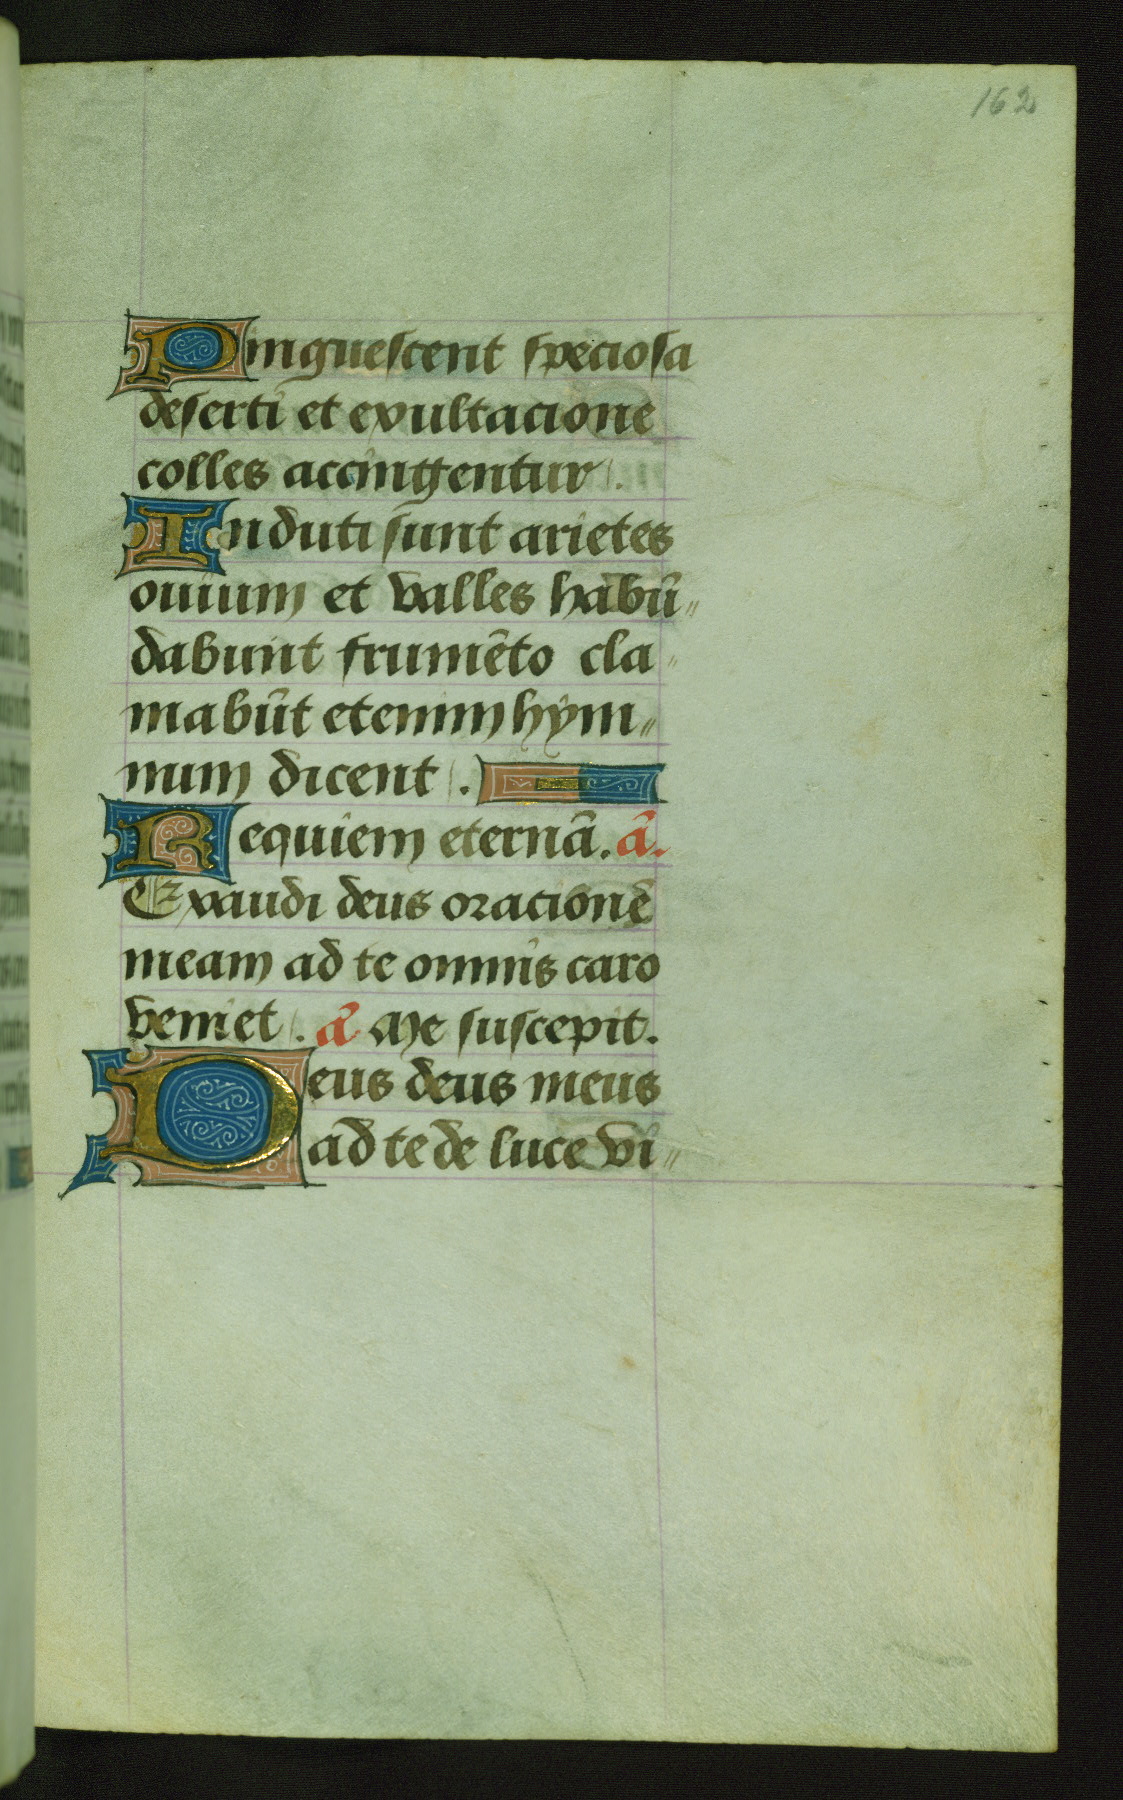 162
Pinguescent speciosa
deserti et exultacione
colles accingentur.
Induti sunt arietes
ouium et valles habū„
dabunt frumēto cla„
mabūt etenim hym„
num dicent.
Requiem eternā. ā.
Exaudi deus oracionē
meam ad te omnis caro
veniet. ā Me suscepit.
Deus deus meus
ad te de luce vi„